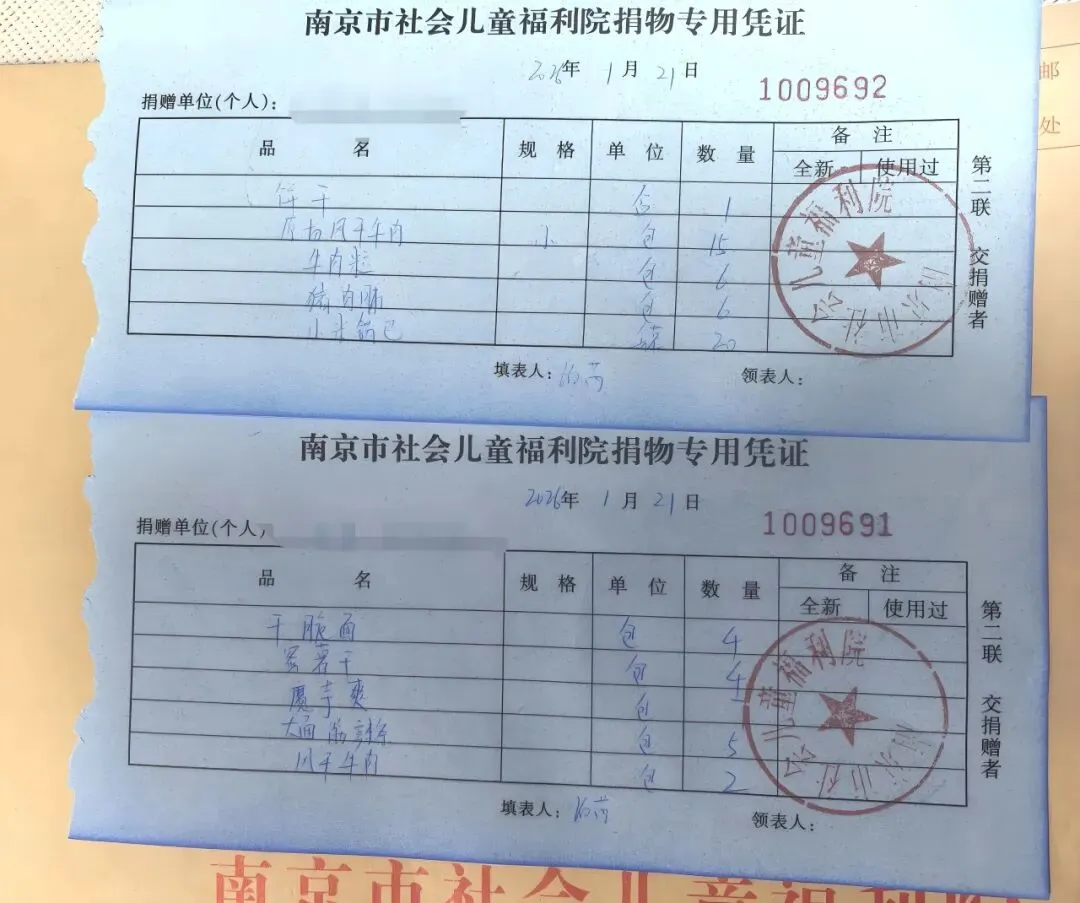 南京市社会儿童福利院捐物专用凭证
2026年 1月 21日
1009692
捐赠单位(个人):
品 名 规 格 单 位 数 量 备 注
全新 使用过
饼干 盒 1
风干牛肉 小 包 15
牛肉粒 包 6
猪肉脯 包 6
小米锅巴 袋 20
填表人: 领表人:
第二联 交捐赠者
南京市社会儿童福利院
南京市社会儿童福利院捐物专用凭证
2026年 1月 21日
1009691
捐赠单位(个人)
品 名 规 格 单 位 数 量 备 注
全新 使用过
干脆面 包 4
薯干 包 4
魔芋爽 包
大面筋 包 5
风干牛肉 包 2
填表人: 领表人:
第二联 交捐赠者
南京市社会儿童福利院
南京市社会儿童福利院
邮
处